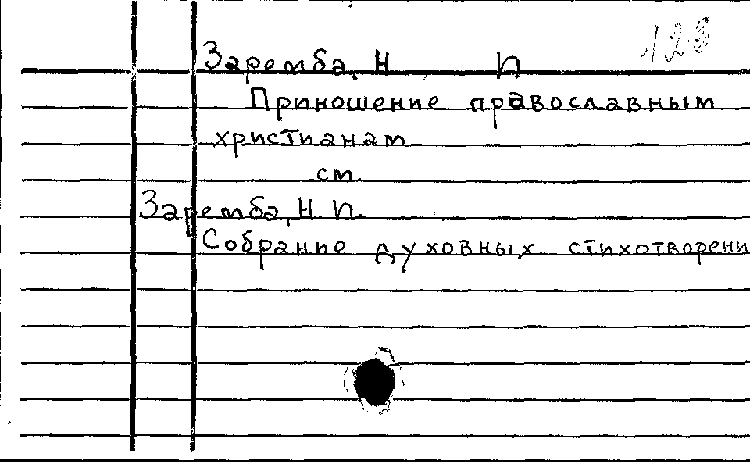 128
Заремба, Н П
Приношение православным
христианам
см.
Заремба, Н. П.
Собрание духовных стихотворени